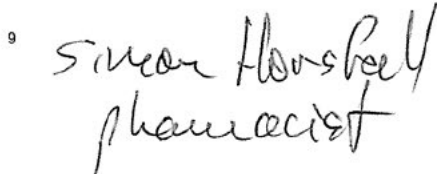 9 Simon Horsfall
pharmacist